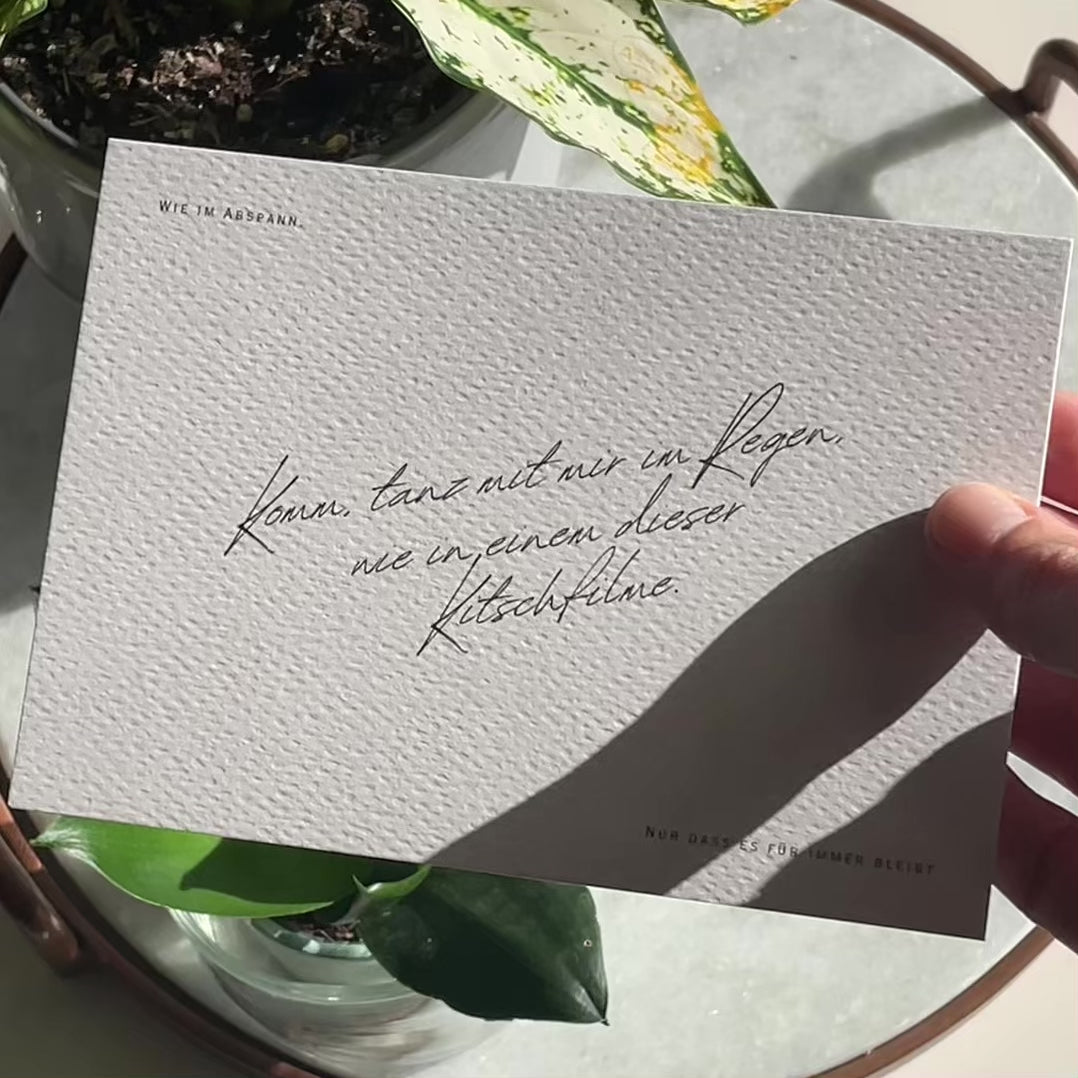 Wie im Abspann.
Komm, tanz mit mir im Regen,
wie in einem dieser
Kitschfilme.
Nur dass es für immer bleibt